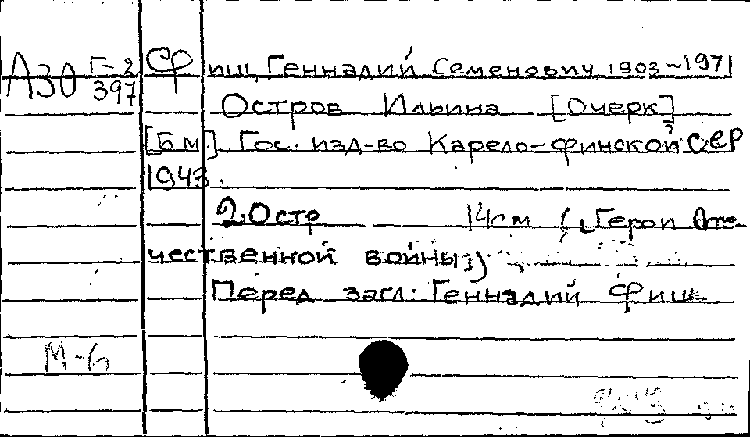 АЗО Г-2 Фиш, Геннадий Семенович, 1903-1971
397
Остров Ильина [Очерк]
[Б.м.] Гос. изд-во Карело-финской ССР
1943.
14см („Герои Оте-
чественной войны")
Перед загл.: Геннадий Фиш
М-6